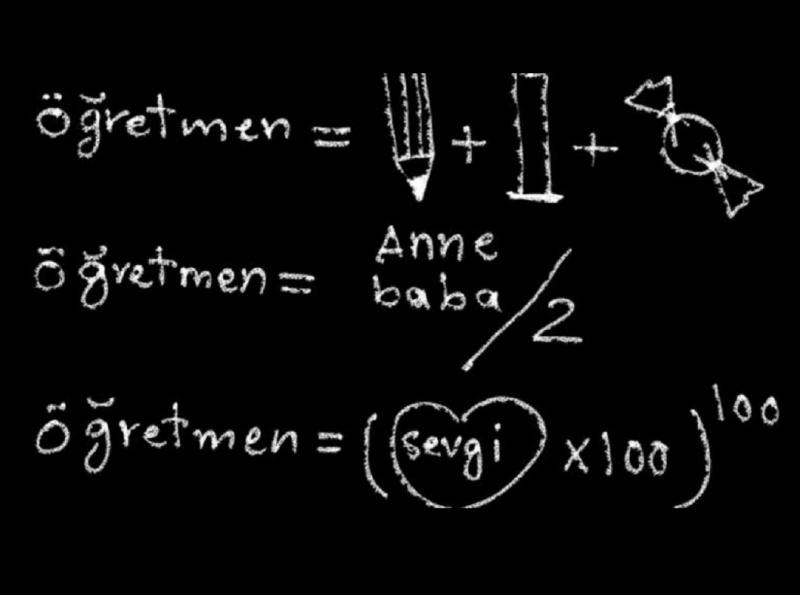 öğretmen = + +
öğretmen = Anne baba / 2
öğretmen = (sevgi x100)¹⁰⁰